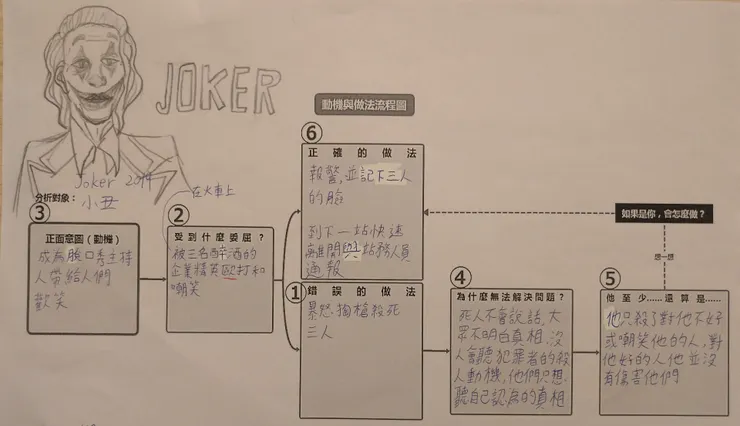 JOKER
動機與做法流程圖
Joker 2019
分析對象：
小丑
在火車上
③
正面意圖（動機）
成為脫口秀主持
人帶給人們
歡笑
②
受到什麼委屈？
被三名醉酒的
企業精英毆打和
嘲笑
⑥
正確的做法
報警，並記下三人
的臉
到下一站快速
離開與站務人員
通報
①
錯誤的做法
暴怒.掏槍殺死
三人
④
為什麼無法解決問題？
死人不會說話，大
眾不明白真相.沒
人會聽犯罪者的殺
人動機，他們只想
聽自己認為的真相
如果是你，會怎麼做？
想一想
⑤
他至少……還算是……
他只殺了對他不好
或嘲笑他的人，對
他好的人他並沒
有傷害他們